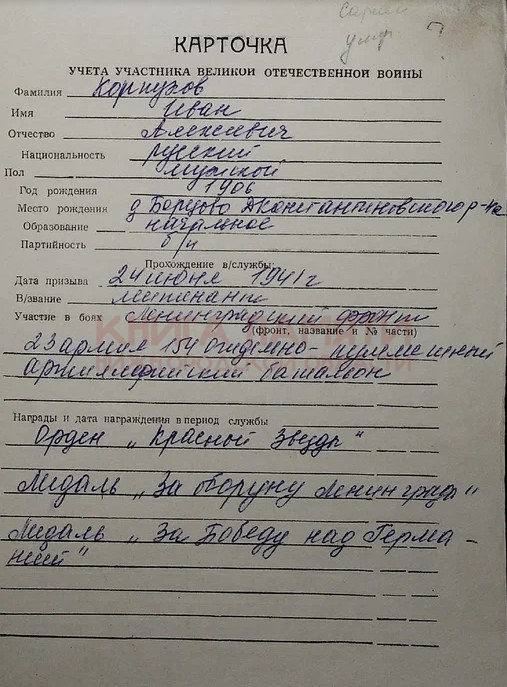 Сергей
умер ?
КАРТОЧКА
УЧЕТА УЧАСТНИКА ВЕЛИКОЙ ОТЕЧЕСТВЕННОЙ ВОЙНЫ
Фамилия Корпухов
Имя Иван
Отчество Алексеевич
Национальность русский
Пол мужской
Год рождения 1906
Место рождения д Борцово Дконстантиновского р-на
Образование начальное
Партийность б/п
Прохождение в/службы:
Дата призыва 24 июня 1941 г
В/звание лейтенант
Участие в боях Ленинградский фронт
(фронт, название и № части)
23 армия 154 отдельно-пулеметный
артиллерийский баталион
Награды и дата награждения в период службы
Орден „Красной Звезды"
Медаль „За оборону Ленинграда"
Медаль „За Победу над Герма-
нией"
КНИГА ПАМЯТИ